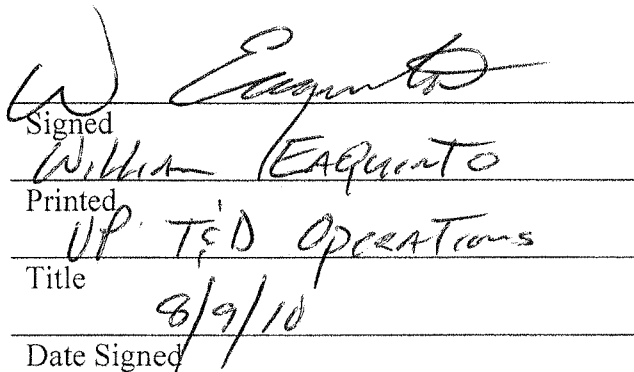 W Eaquinto
Signed
William Eaquinto
Printed
VP T&D Operations
Title
8/9/10
Date Signed